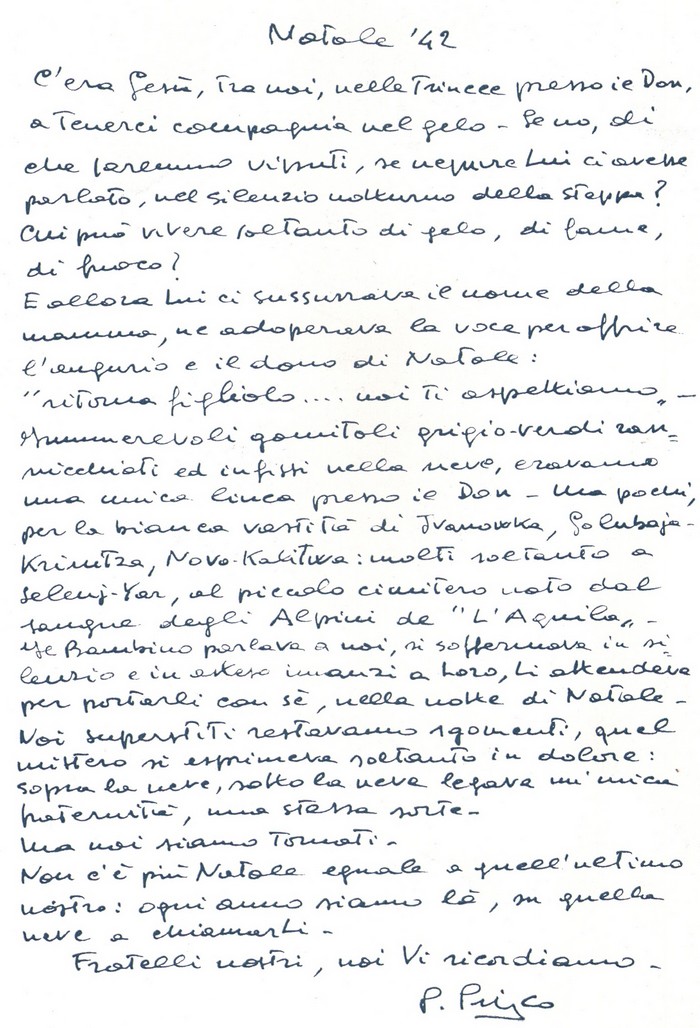 Natale '42
C'era Gesù, tra noi, nelle Trincee presso ie Don,
a Tenerci compagnia nel gelo - Se no, di
che saremmo vissuti, se neppure Lui ci avesse
parlato, nel silenzio notturno della steppa?
Chi può vivere soltanto di gelo, di fame,
di fuoco?
E allora Lui ci sussurrava il nome della
mamma, ne adoperava la voce per offrire
l'augurio e il dono di Natale:
"ritorna figliolo.... noi Ti aspettiamo„ -
Innumerevoli gomitoli grigio-verdi ran-
nicchiati ed infissi nella neve, eravamo
una unica linea presso ie Don - Ma pochi,
per la bianca vastità di Ivanowka, Golubaja-
Krinitza, Novo-Kalitwa: molti soltanto a
Selenj-Yar, al piccolo cimitero nato dal
sangue degli Alpini de "L'Aquila„ -
Ie Bambino parlava a noi, si soffermava in si-
lenzio e in attesa innanzi a Loro, Li attendeva
per portarli con sè, nella notte di Natale -
Noi superstiti restavamo sgomenti, quel
mistero si esprimeva soltanto in dolore:
sopra la neve, sotto la neve legava un'unica
fraternità, una stessa sorte -
Ma noi siamo Tornati -
Non c'è più Natale eguale a quell'ultimo
nostro: ogni anno siamo là, su quella
neve a chiamarLi -
Fratelli nostri, noi Vi ricordiamo -
P. Prisco